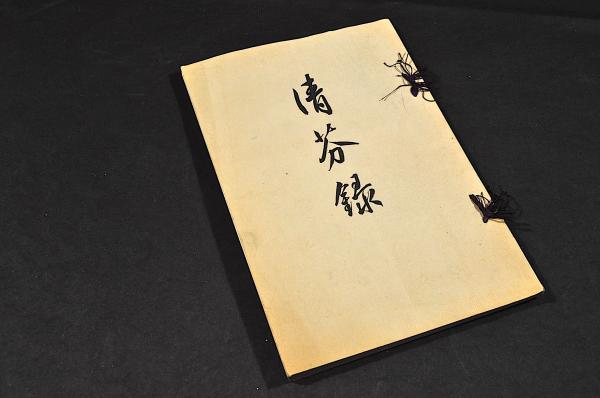 清芬録